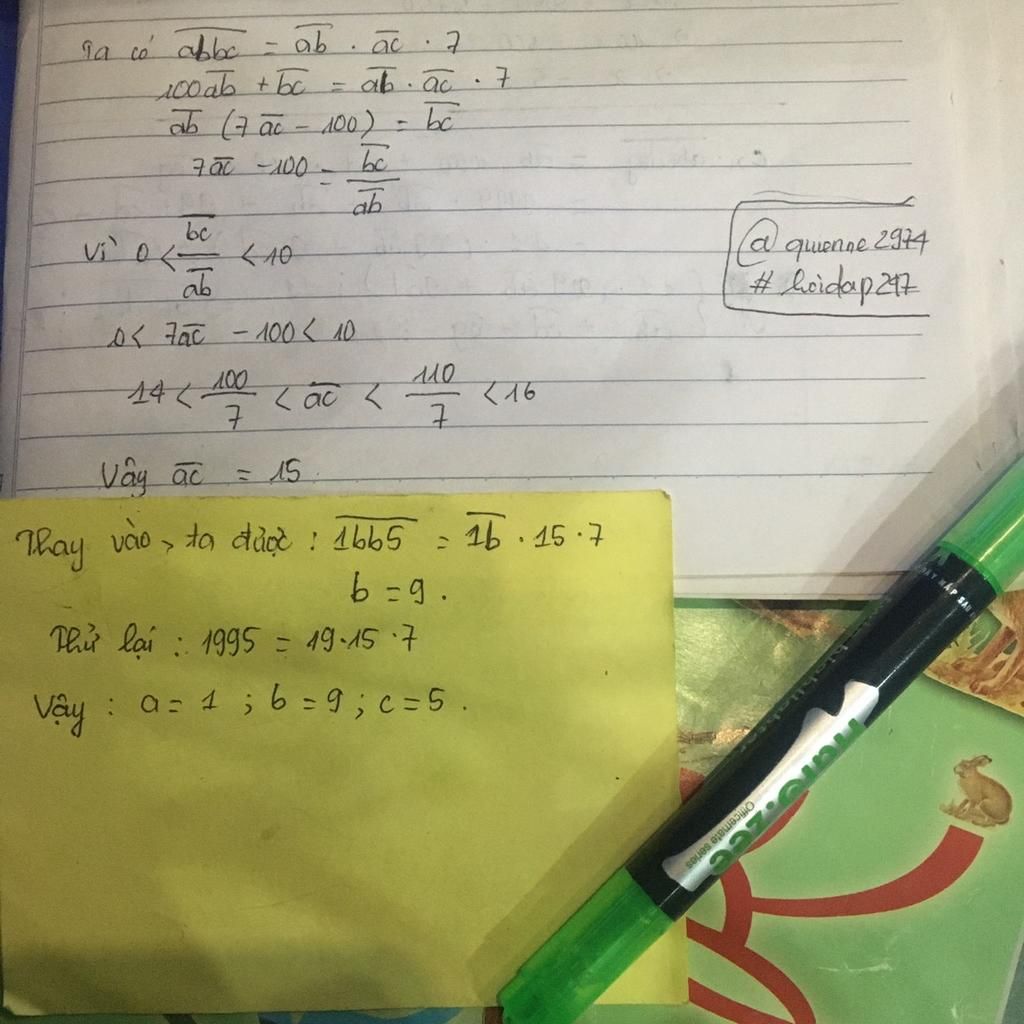 Ta có $\overline{abbc} = \overline{ab} \cdot \overline{ac} \cdot 7$
$100\overline{ab} + \overline{bc} = \overline{ab} \cdot \overline{ac} \cdot 7$
$\overline{ab} (7\overline{ac} - 100) = \overline{bc}$
$7\overline{ac} - 100 = \frac{\overline{bc}}{\overline{ab}}$
Vì $0 < \frac{\overline{bc}}{\overline{ab}} < 10$
@quienne2974
# hoidap247
$0 < 7\overline{ac} - 100 < 10$
$14 < \frac{100}{7} < \overline{ac} < \frac{110}{7} < 16$
Vậy $\overline{ac} = 15$.
Thay vào, ta được : $\overline{1bb5} = \overline{1b} \cdot 15 \cdot 7$
b = 9.
Thử lại : 1995 = 19·15·7
Vậy : a = 1 ; b = 9 ; c = 5.
Officemate series